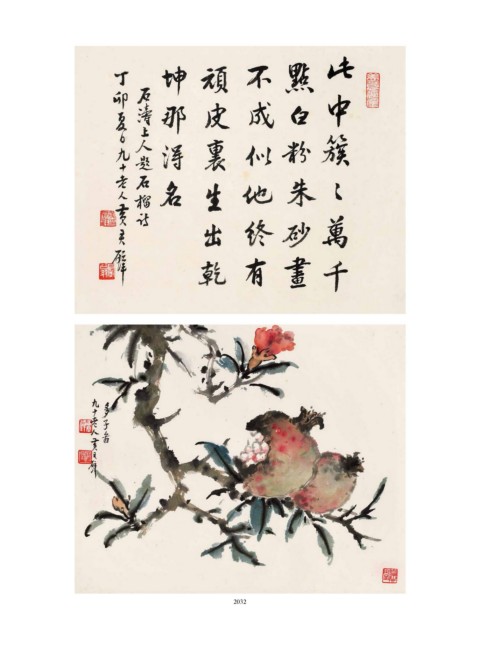 此中簇〻萬千
點白粉朱砂畫
不成似他終有
頑皮裏生出乾
坤那得名
石濤上人題石榴诗
丁卯夏日九十老人黄君璧
多子
九十老人黄君璧
2032